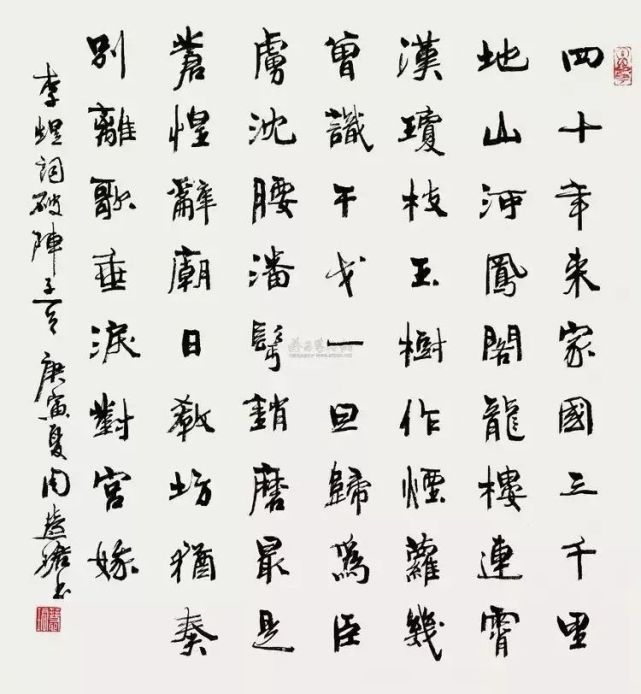 四十年来家國三千里
地山河鳳閣龍樓連霄
漢瓊枝玉樹作煙蘿幾
曾識干戈一旦歸爲臣
虜沈腰潘鬢銷磨最是
蒼惶辭廟日教坊猶奏
別離歌垂淚對宮娥
李煜詞破陣子一首 庚寅夏周慧珺书